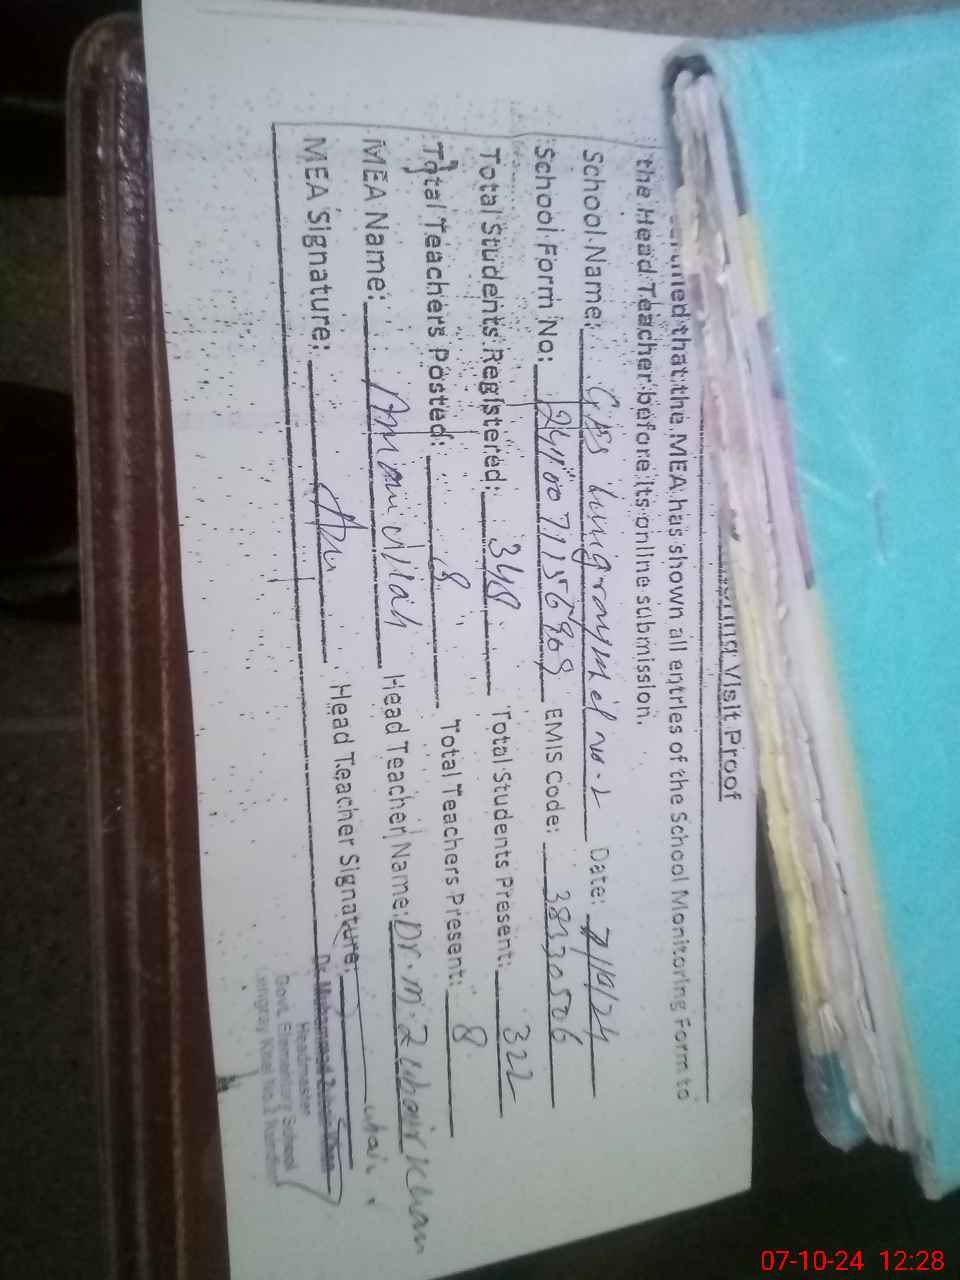 Visit Proof
that the MEA has shown all entries of the School Monitoring Form to
the Head Teacher before its online submission.
School Name: GES Lungray Khel No. 2 Date: 7/10/24
School Form No: EMIS Code: 38330506
Total Students Registered: 348 Total Students Present: 322
Total Teachers Posted: 8 Total Teachers Present: 8
MEA Name: Amanullah Head Teacher Name: Dr. M. Zubair Khan
MEA Signature: Head Teacher Signature:
Headmaster
Govt. Elementary School
Khel No.2
07-10-24 12:28